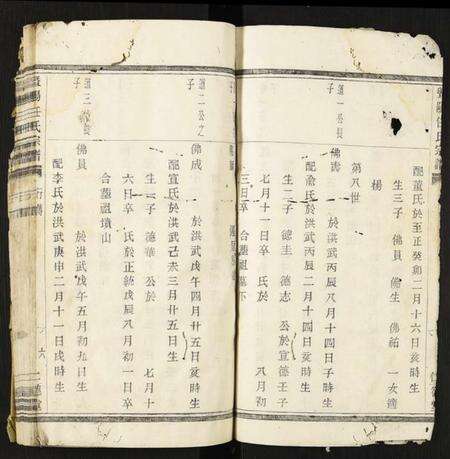 配董氏於至正癸卯二月十六日亥時生
生三子 佛員 佛生 佛祐 一女適
楊
第八世
道一公長子
佛壽 於洪武丙辰八月十四日子時生
配詹氏於洪武丙辰二月十四日亥時生
生二子 德圭 德志 公於宣德壬子
七月十一日卒 氏於 八月初
三日卒 合葬祖墓下
道二公之子
佛成 於洪武戊午四月廿五日亥時生
配宣氏於洪武己未三月廿五日生
生一子 德華 公於 七月十
六日卒 氏於正統戊辰八月初一日卒
合葬祖墳山
道三公長子
佛員 於洪武戊午五月初九日生
配李氏於洪武庚申二月十一日戌時生